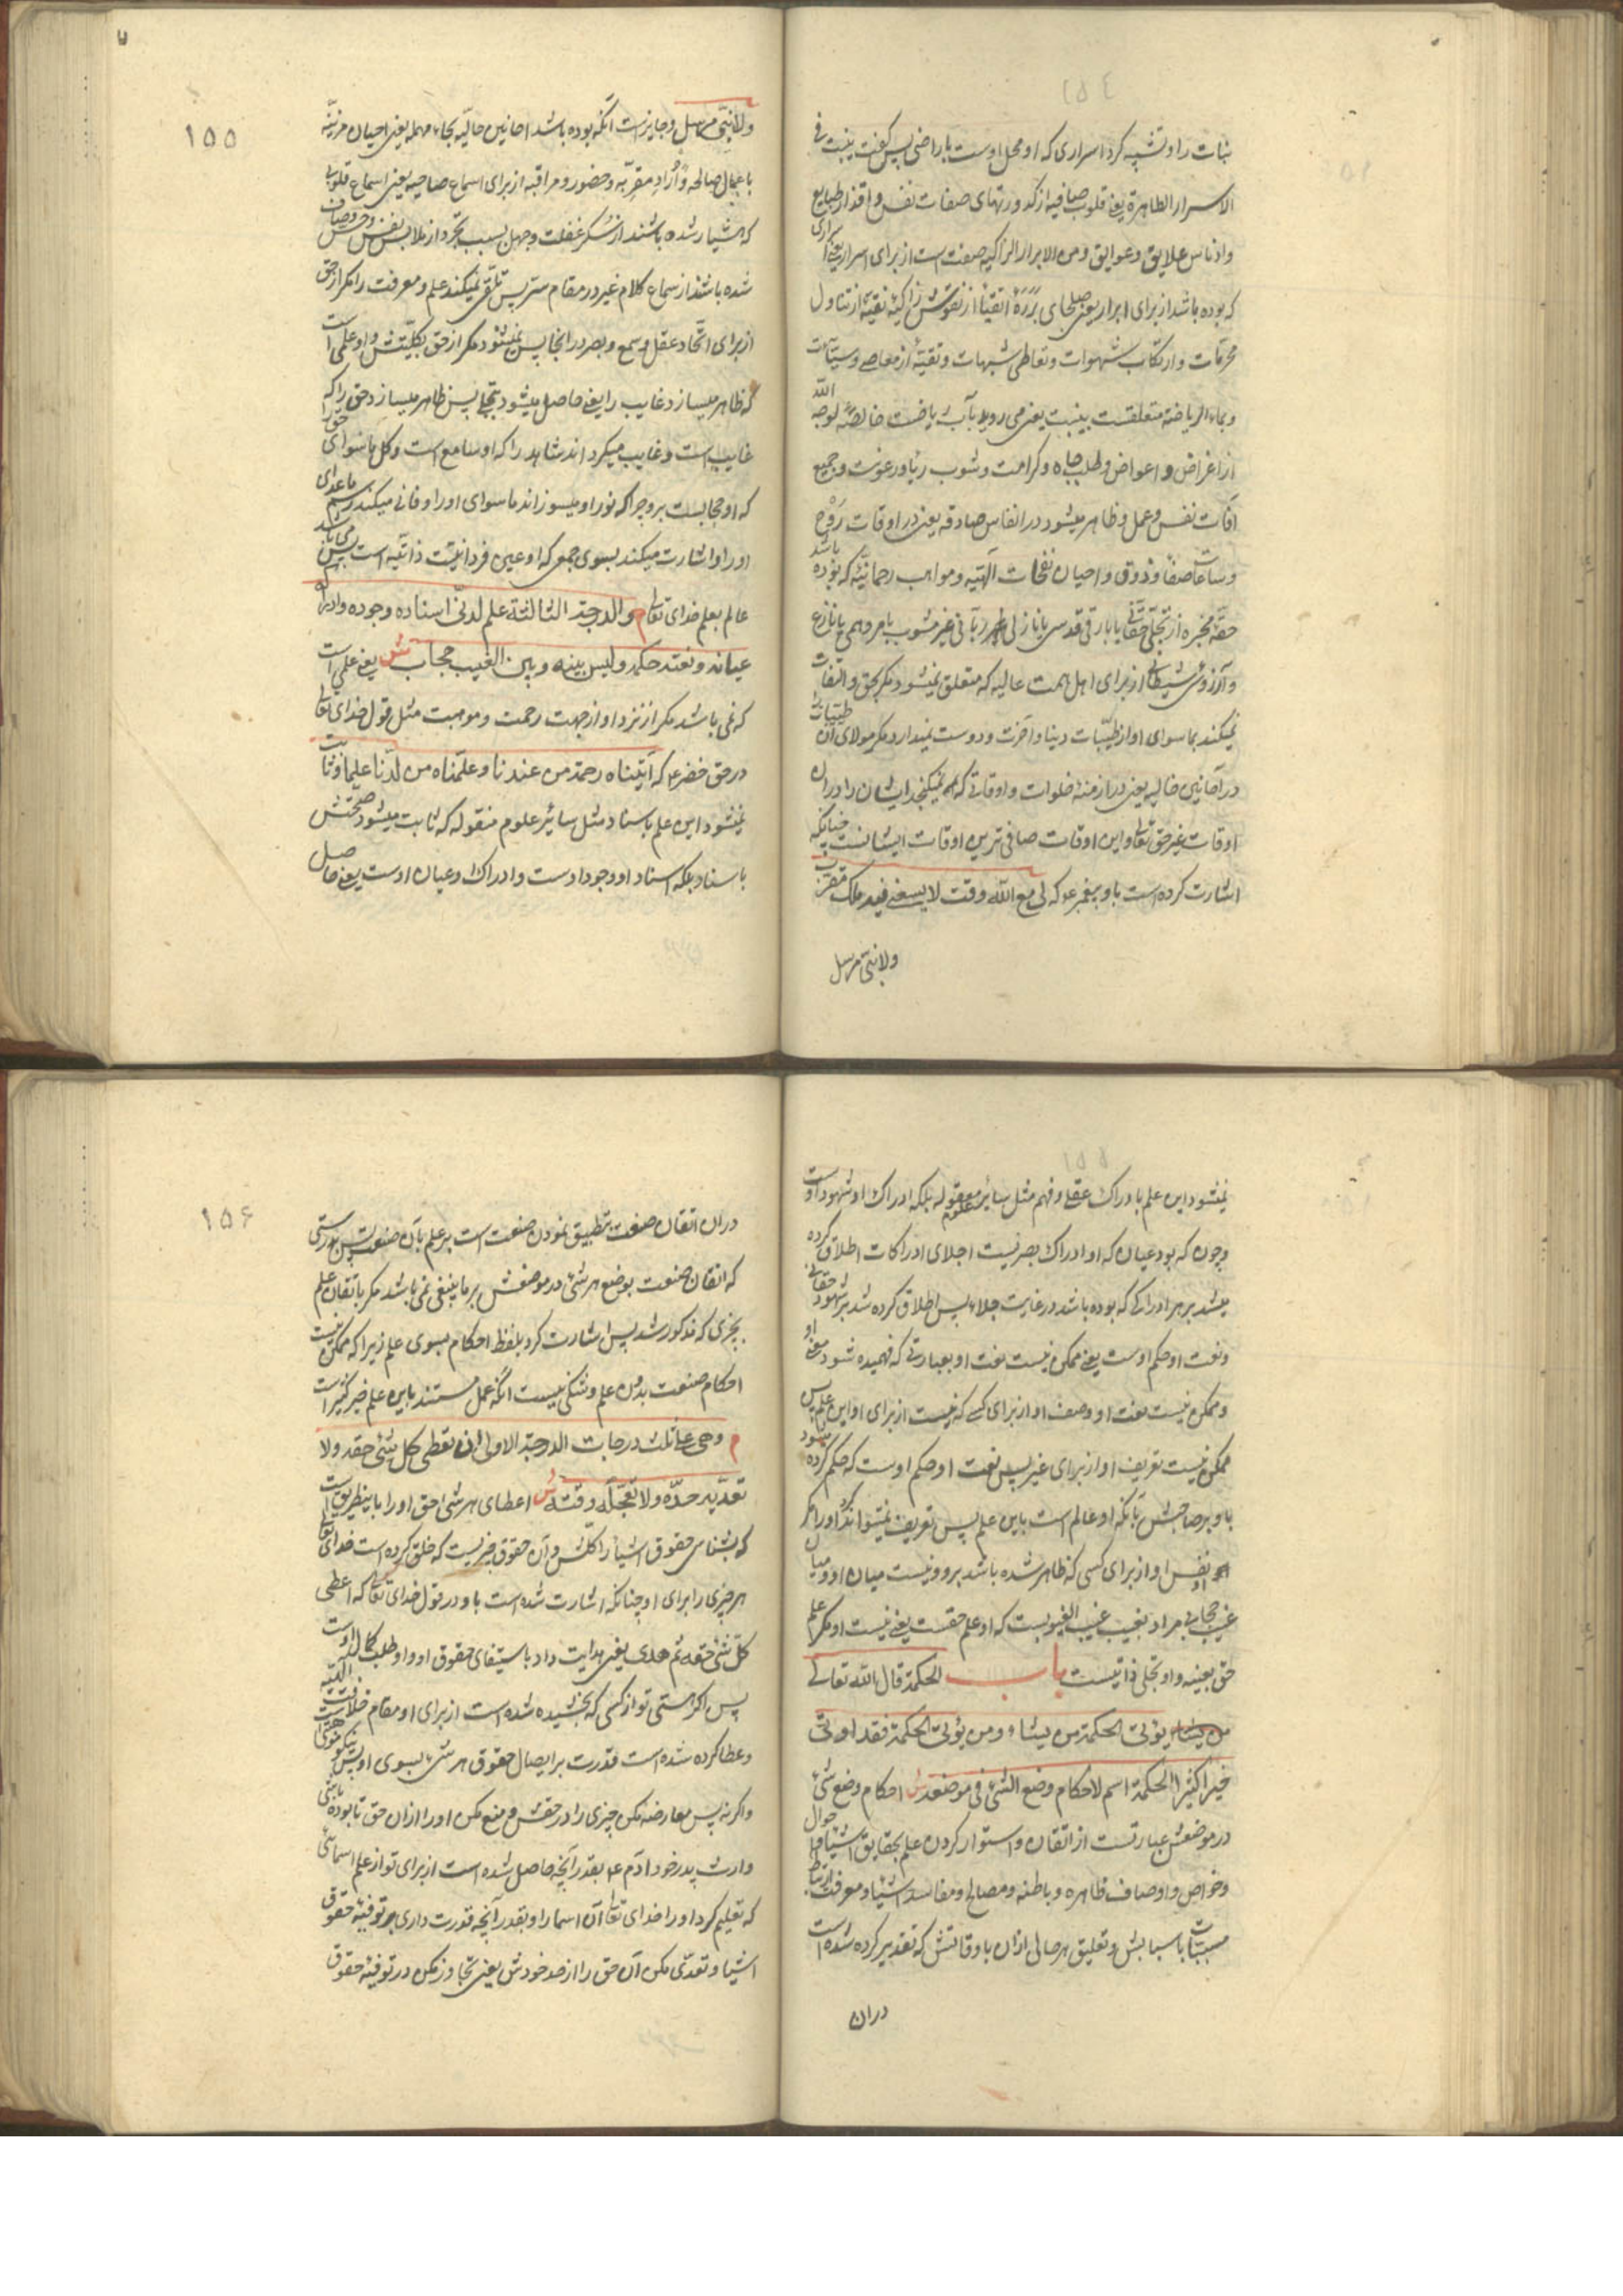 نبات را و تشبیه کرد اسراری که او محل اوست باراضی پس کفت ینبت فی
الاسرار الطاهرة یعنی قلوب صافیه از کدورتهای صفات نفس و اقذار طبایع
وادناس علایق و عوایق و من الابرار الزاکیه صفت است از برای اسرار یعنی اسراری
که بوده باشد از برای ابرار یعنی صلحای بررة اتقیا از نفوس زاکیهٔ نقیهٔ از تناول
محرمات و ارتکاب شهوات و تعاطی شبهات و تقیهٔ از معاصی و سیئات
وبماء الریاضة متعلقست بینبت یعنی می روید بآب ریاضت خالصهٔ لوجه الله
از اغراض و اعواض و طلب جاه و کرامت و شوب ریا و رعونت و جمیع
آفات نفس و عمل و ظاهر میشود در انفاس صادقه یعنی در اوقات روح
وساعات صفا و ذوق و احیان نفحات آلهیه و مواهب رحمانیّه که بوده باشد
حقه مخبره از تجلی حقانی یا بارقی قدسی یا نازلی ربانی غیر مشوب بامر وهمی یا نازع
و آرزوی شیطانی از برای اهل همت عالیه که متعلق نمیشود مکر بحق و التفات
نمیکند بما سوای او از طیّبات دنیا و آخرت و دوست نمیدارد مکر مولای آن طیبات را
در آحایین خالیه یعنی در ازمنهٔ خلوات و اوقاتی که نمیکنجد ایشان را در آن
اوقات غیر حق تعالی و این اوقات صافی ترین اوقات ایشانست چنانکه
اشارت کرده است باو پیغمبر ع که لی مع الله وقت لا یسعنی فیه ملک مقرب
ولا نبی مرسل
۱۵۵
ولا نبی مرسل و جایز است آنکه بوده باشد احایین حالیه بحاء مهمله یعنی احیان مزینه
باعمال صالحه و اوراد مقربه و حضور و مراقبه از برای اسماع صاحیه یعنی اسماع قلوبی
که هشیار شده باشند از سکر غفلت و جهل بسبب تجرد از ملابس نفس و حس و صاف
شده باشند از سماع کلام غیر در مقام سر پس تلقی نمیکنند علم و معرفت را مکر از حق
از برای اتحاد عقل و سمع و بصر در انجا پس نمیشنود مکر از حق بکلیتش و او علمی است
که ظاهر میسازد غایب را یعنی حاصل میشود بتجلی پس ظاهر میسازد حق را که
غایب است و غایب میکرداند شاهد را که او سامع است و کل ما سوای حق را
که او حجابست بر وجه آنکه نور او میسوزاند ما سوای او را و فانی میکند رسم ما عدای
او را و اشارت میکند بسوی جمعی که او عین فردانیت ذاتیه است پس میباشد
عالم بعلم خدای تعالی م والدرجة الثالثة علم لدنی اسناده وجوده وادراکه
عیانه و نعته حکمه و لیس بینه و بین الغیب حجاب ش یعنی علمی است
که نمی باشد مکر از نزد او از جهت رحمت و موهبت مثل قول خدای تعالی
در حق خضر ع که آتیناه رحمة من عندنا و علمناه من لدنا علما و ثابت
نمیشود این علم باسناد مثل سایر علوم منقوله که ثابت میشود صحتش
باسناد بلکه اسناد او وجود اوست و ادراک او عیان اوست یعنی حاصل
نمیشود این علم بادراک عقلی و فهم مثل سایر علوم معقوله بلکه ادراک او شهود اوست
و چون که بود عیان که او ادراک بصریست اجلای ادراکات اطلاق کرده
میشد بر هر ادراکی که بوده باشد در غایت جلاء پس اطلاق کرده شد بر شهود حقانی
و نعت او حکم اوست یعنی ممکن نیست نعت او بعبارتی که فهمیده شود معنی او
و ممکن نیست نعت او و وصف او از برای کسی که نیست از برای او این علم پس
ممکن نیست تعریف او از برای غیر پس نعت او حکم اوست که حکم کرده میشود
باو بر صاحبش بآنکه او عالم است باین علم پس تعریف نمیتواند کرد او را مکر
نفس او از برای کسی که ظاهر شده باشد برو و نیست میان او و میان
غیب حجابی مراد بغیب غیب الغیوبست که او علم حقست یعنی نیست او مکر علم
حق بعینه و او تجلی ذاتیست باب الحکمة قال الله تعالی
یؤتی الحکمة من یشاء و من یؤتی الحکمة فقد اوتی
خیرا کثیرا الحکمة اسم لاحکام وضع الشئ فی موضعه ش احکام وضع شئ
در موضعش عبارتست از اتقان و استوار کردن علم بحقایق اشیا و احوال
و خواص و اوصاف ظاهره و باطنه و مصالح و مفاسد اشیا و معرفت ارتباط
مسببات باسبابش و تعلیق هر حالی از آن باوقاتش که تقدیر کرده شده است
دران
۱۵۶
دران اتقان صنعت تطبیق نمودن صنعت است بر علم بآن صنعت پس بدرستی
که اتقان صنعت بوضع هر شئ در موضعش بر ما ینبغی نمی باشد مکر باتقان علم
بچیزی که مذکور شد پس اشارت کرد بلفظ احکام بسوی علم زیرا که ممکن نیست
احکام صنعت بدون علم و شکی نیست آنکه عمل مستند باین علم خیر کثیر است
م و هی علی ثلث درجات الدرجة الاولی ان تعطی کل شئ حقه ولا
تعدّیه حدّه ولا تعجّله وقته ش اعطای هر شئ حق او را باینطریقست
که بشناسی حقوق اشیا را کلش و آن حقوق چیزیست که خلق کرده است خدای تعالی
هر چیزی را برای او چنانکه اشارت شده است باو در قول خدای تعالی که اعطی
کل شئ خلقه ثم هدی یعنی هدایت داد باستیفای حقوق او و او طلب کمال اوست
پس اکر هستی تو از کسی که بخشیده شده است از برای او مقام خلافت الهیه
و عطا کرده شده است قدرت بر ایصال حقوق هر شئ بسوی او پس نیکو
و اکر نه پس معارضه مکن چیزی را در حقش و منع مکن او را از آن حق تا بوده باشی
وارث پدر خود آدم ع بقدر آنچه حاصل شده است از برای تو از علم اسمائی
که تعلیم کرد او را خدای تعالی آن اسما را و بقدر آنچه قدرت داری بر توفیهٔ حقوق
اشیا و تعدی مکن آن حق را از حد خودش یعنی تجاوز مکن در توفیهٔ حقوق